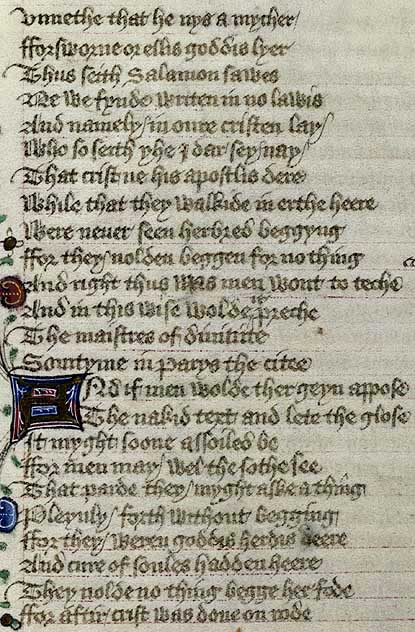 Unnethe that he nys a mycher
fforsworne or ellis goddis lyer
Thus seith Salamon sawes
Ne we fynde writen in no lawis
And namely in oure cristen lay
Who so seith yhe I dar sey nay
That crist ne his apostlis dere
While that they walkide in erthe heere
Were neuer seen herbred beggyng
ffor they nolden beggen for no thing
And right thus was men wont to teche
And in this wise wolde it preche
The maistres of diuinite
Somtyme in parys the citee
And if men wolde ther geyn appose
The nakid text and lete the glose
It myght soone assoiled be
ffor men may wel the sothe see
That parde they myght aske a thing
Pleynly forth without begging
ffor they weren goddis herdis deere
And cure of soules hadden heere
They nolde no thing begge her fode
ffor aftir crist was done on rode